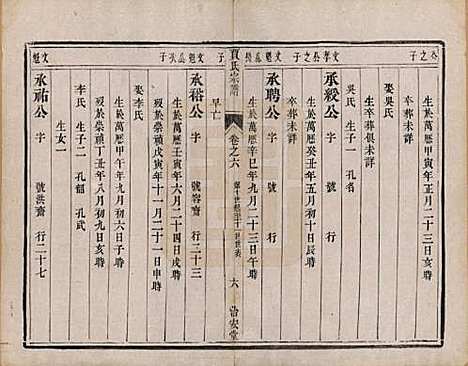 公之子
生於萬歷甲寅年正月二十三日寅時
卒葬未詳
文季公之子
承毅公 字 號 行
生卒葬俱未詳
吳氏 生子一 孔名
生於萬歷癸丑年五月初十日辰時
卒葬未詳
承聘公 字 號 行
生於萬歷辛巳年九月二十三日亥時
早亡
賈氏宗譜
卷之六
六
浩宏堂
承裕公 字 號容齋 行二十三
生於萬歷壬寅年六月二十四日戌時
歿於崇禎戊寅年十一月二十一日申時
娶李氏
承祐公 字 號洪齋 行二十七
生於萬歷甲午年八月初六日子時
歿於崇禎丁丑年八月初九日亥時
娶吳氏
李氏 生子二 孔韜 孔武
生女一